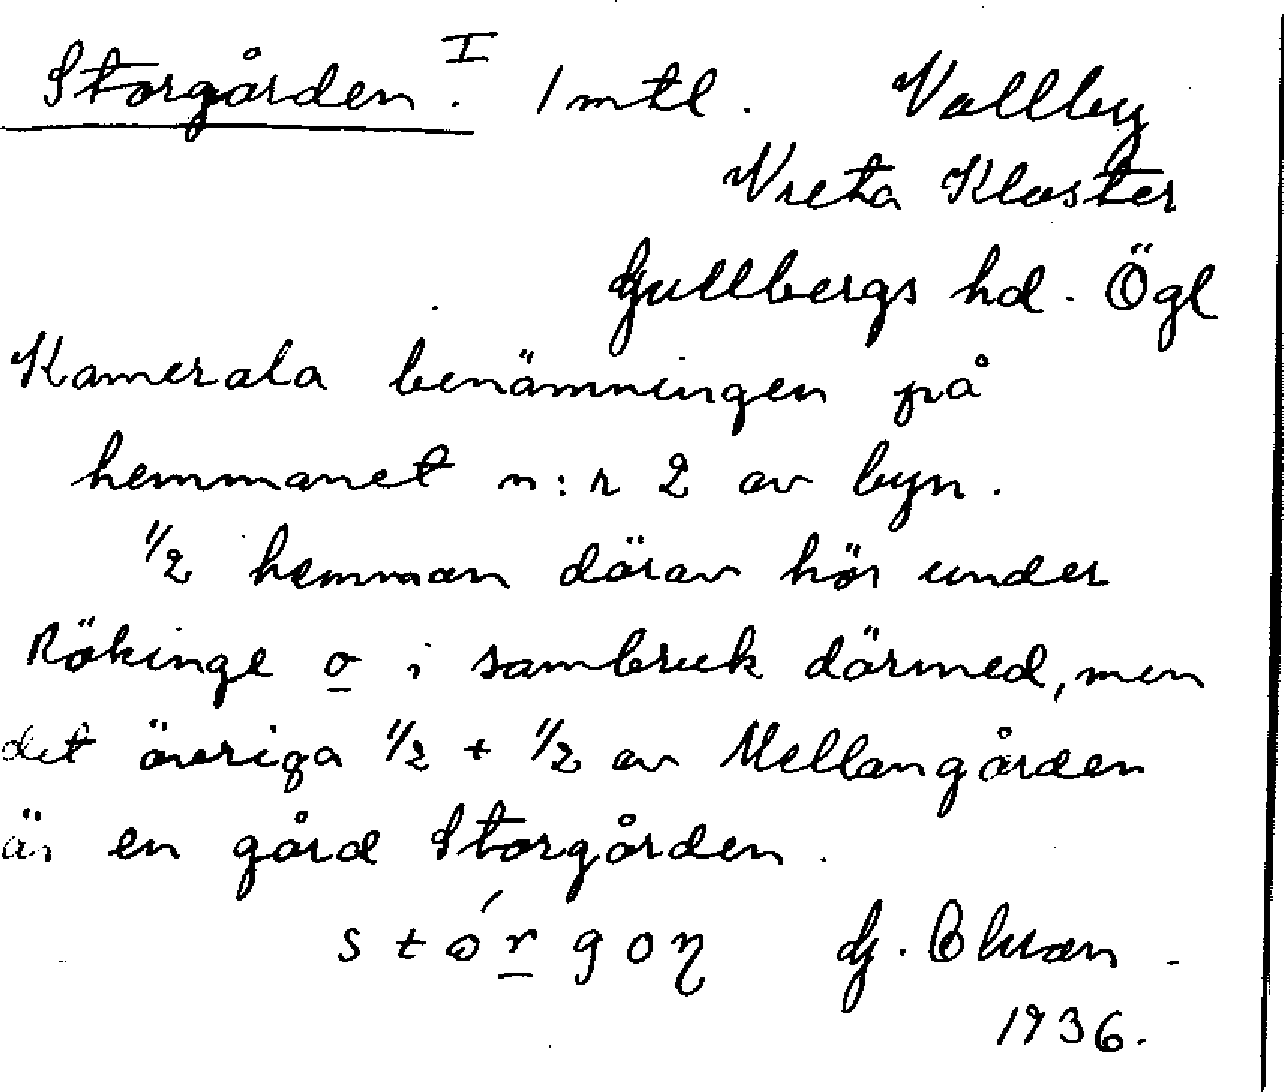 Storgården. I 1 mtl. Vallby
Vreta Kloster
Gullbergs hd. Ögl
Kamerala benämningen på
hemmanet n:r 2 av byn.
1/2 hemman därav hör under
Rökinge o i sambruk därmed, men
det övriga 1/2 + 1/2 av Mellangården
är en gård Storgården.
G.
1936.